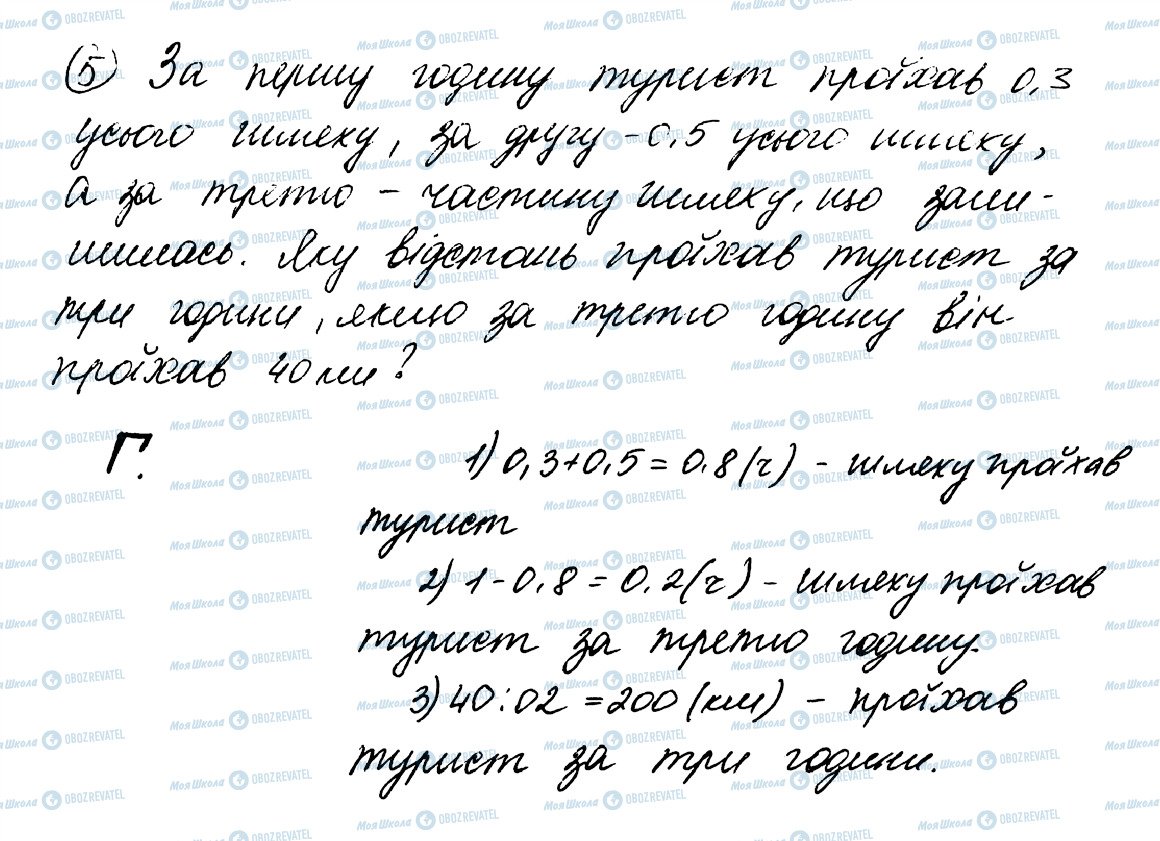 5) За першу годину турист проїхав 0,3
усього шляху, за другу - 0,5 усього шляху,
а за третю - частину шляху, що зали-
шилась. Яку відстань проїхав турист за
три години, якщо за третю годину він
проїхав 40 км?
Г. 1) 0,3+0,5 = 0.8 (ч) - шляху проїхав
турист
2) 1 - 0.8 = 0.2 (ч) - шляху проїхав
турист за третю годину.
3) 40 : 02 = 200 (км) - проїхав
турист за три години.
Моя Школа OBOZREVATEL